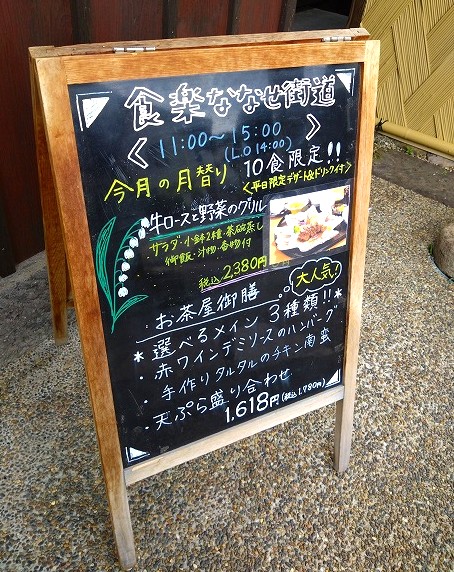 食楽ななせ街道
< 11:00～15:00 >
(L.O 14:00)
今月の月替り 10食限定!!
<平日限定デザート&ドリンク付>
牛ロースと野菜のグリル
サラダ・小鉢2種・茶碗蒸し
御飯・汁物・香物付
税込2,380円
お茶屋御膳 大人気!
*選べるメイン3種類!!*
・赤ワインデミソースのハンバーグ
・手作りタルタルのチキン南蛮
・天ぷら盛り合わせ
1,618円(税込1,780円)